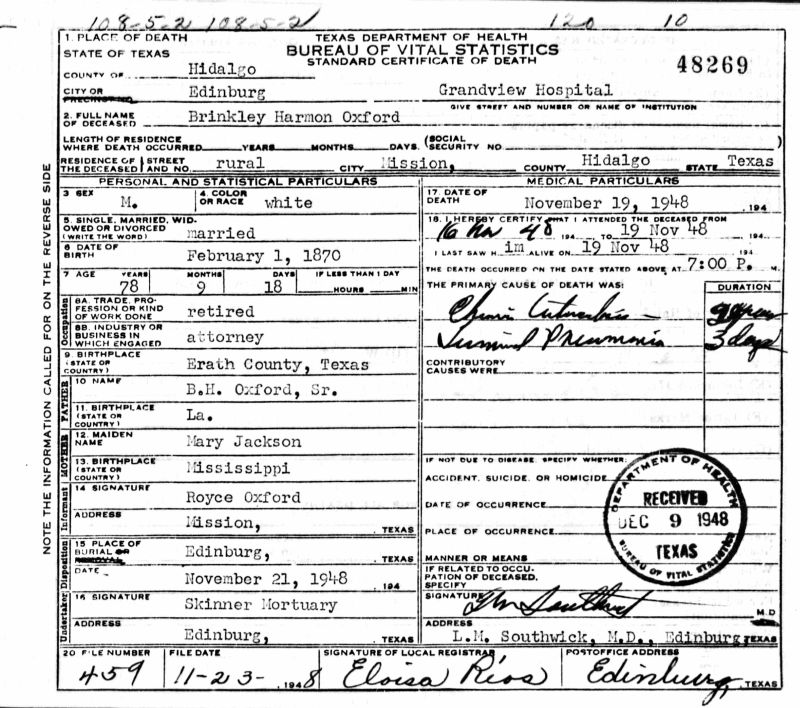 108-5-2 108-5-2 120 10
1. PLACE OF DEATH
STATE OF TEXAS
TEXAS DEPARTMENT OF HEALTH
BUREAU OF VITAL STATISTICS
STANDARD CERTIFICATE OF DEATH
48269
COUNTY OF Hidalgo
CITY OR PRECINCT NO. Edinburg Grandview Hospital
GIVE STREET AND NUMBER OR NAME OF INSTITUTION
2. FULL NAME OF DECEASED Brinkley Harmon Oxford
LENGTH OF RESIDENCE
WHERE DEATH OCCURRED YEARS MONTHS DAYS. (SOCIAL SECURITY NO. )
RESIDENCE OF THE DECEASED STREET AND NO. rural CITY Mission, COUNTY Hidalgo STATE Texas
PERSONAL AND STATISTICAL PARTICULARS
3 SEX M. 4. COLOR OR RACE white
5. SINGLE, MARRIED, WIDOWED OR DIVORCED (WRITE THE WORD) married
6 DATE OF BIRTH February 1, 1870
7 AGE YEARS MONTHS DAYS IF LESS THAN 1 DAY
78 9 18 HOURS MIN
Occupation
8A. TRADE, PROFESSION OR KIND OF WORK DONE retired
8B. INDUSTRY OR BUSINESS IN WHICH ENGAGED attorney
9. BIRTHPLACE (STATE OR COUNTRY) Erath County, Texas
FATHER
10 NAME B.H. Oxford, Sr.
11. BIRTHPLACE (STATE OR COUNTRY) La.
MOTHER
12. MAIDEN NAME Mary Jackson
13. BIRTHPLACE (STATE OR COUNTRY) Mississippi
Informant
14 SIGNATURE Royce Oxford
ADDRESS Mission, , TEXAS
Disposition
15 PLACE OF BURIAL OR REMOVAL Edinburg, , TEXAS
DATE November 21, 1948 , 194
Undertaker
16 SIGNATURE Skinner Mortuary
ADDRESS Edinburg, , TEXAS
MEDICAL PARTICULARS
17. DATE OF DEATH November 19, 1948 , 194
18. I HEREBY CERTIFY THAT I ATTENDED THE DECEASED FROM
16 Nov 48 194 TO 19 Nov 48 194
I LAST SAW H im ALIVE ON 19 Nov 48 194
THE DEATH OCCURRED ON THE DATE STATED ABOVE AT 7:00 P. M.
THE PRIMARY CAUSE OF DEATH WAS: DURATION
Pneumonia 3 days
CONTRIBUTORY CAUSES WERE
IF NOT DUE TO DISEASE, SPECIFY WHETHER:
ACCIDENT, SUICIDE, OR HOMICIDE
DATE OF OCCURRENCE
PLACE OF OCCURRENCE
MANNER OR MEANS
IF RELATED TO OCCUPATION OF DECEASED, SPECIFY
DEPARTMENT OF HEALTH
RECEIVED
DEC 9 1948
TEXAS
BUREAU OF VITAL STATISTICS
SIGNATURE LM Southwick M.D.
ADDRESS L.M. Southwick, M.D., Edinburg TEXAS
20 FILE NUMBER FILE DATE SIGNATURE OF LOCAL REGISTRAR POSTOFFICE ADDRESS
459 11-23- 1948 Eloisa Ríos Edinburg, TEXAS
NOTE THE INFORMATION CALLED FOR ON THE REVERSE SIDE